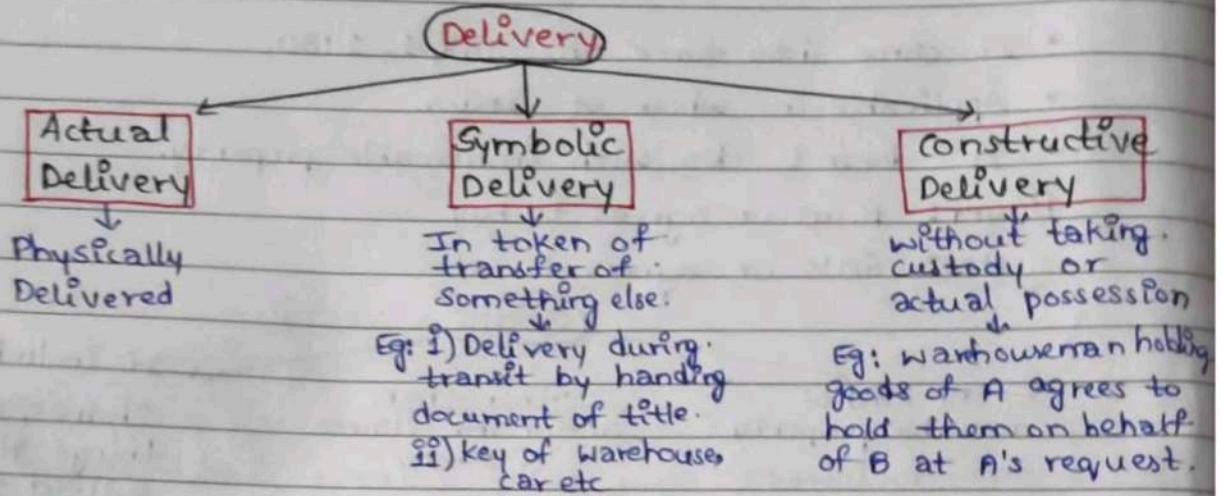 Delivery
Actual
Delivery
Physically
Delivered
Symbolic
Delivery
In token of
transfer of
something else.
Eg: i) Delivery during
transit by handing
document of title.
ii) key of warehouse,
car etc
Constructive
Delivery
without taking
custody or
actual possession
Eg: warehouseman holding
goods of A agrees to
hold them on behalf
of B at A's request.